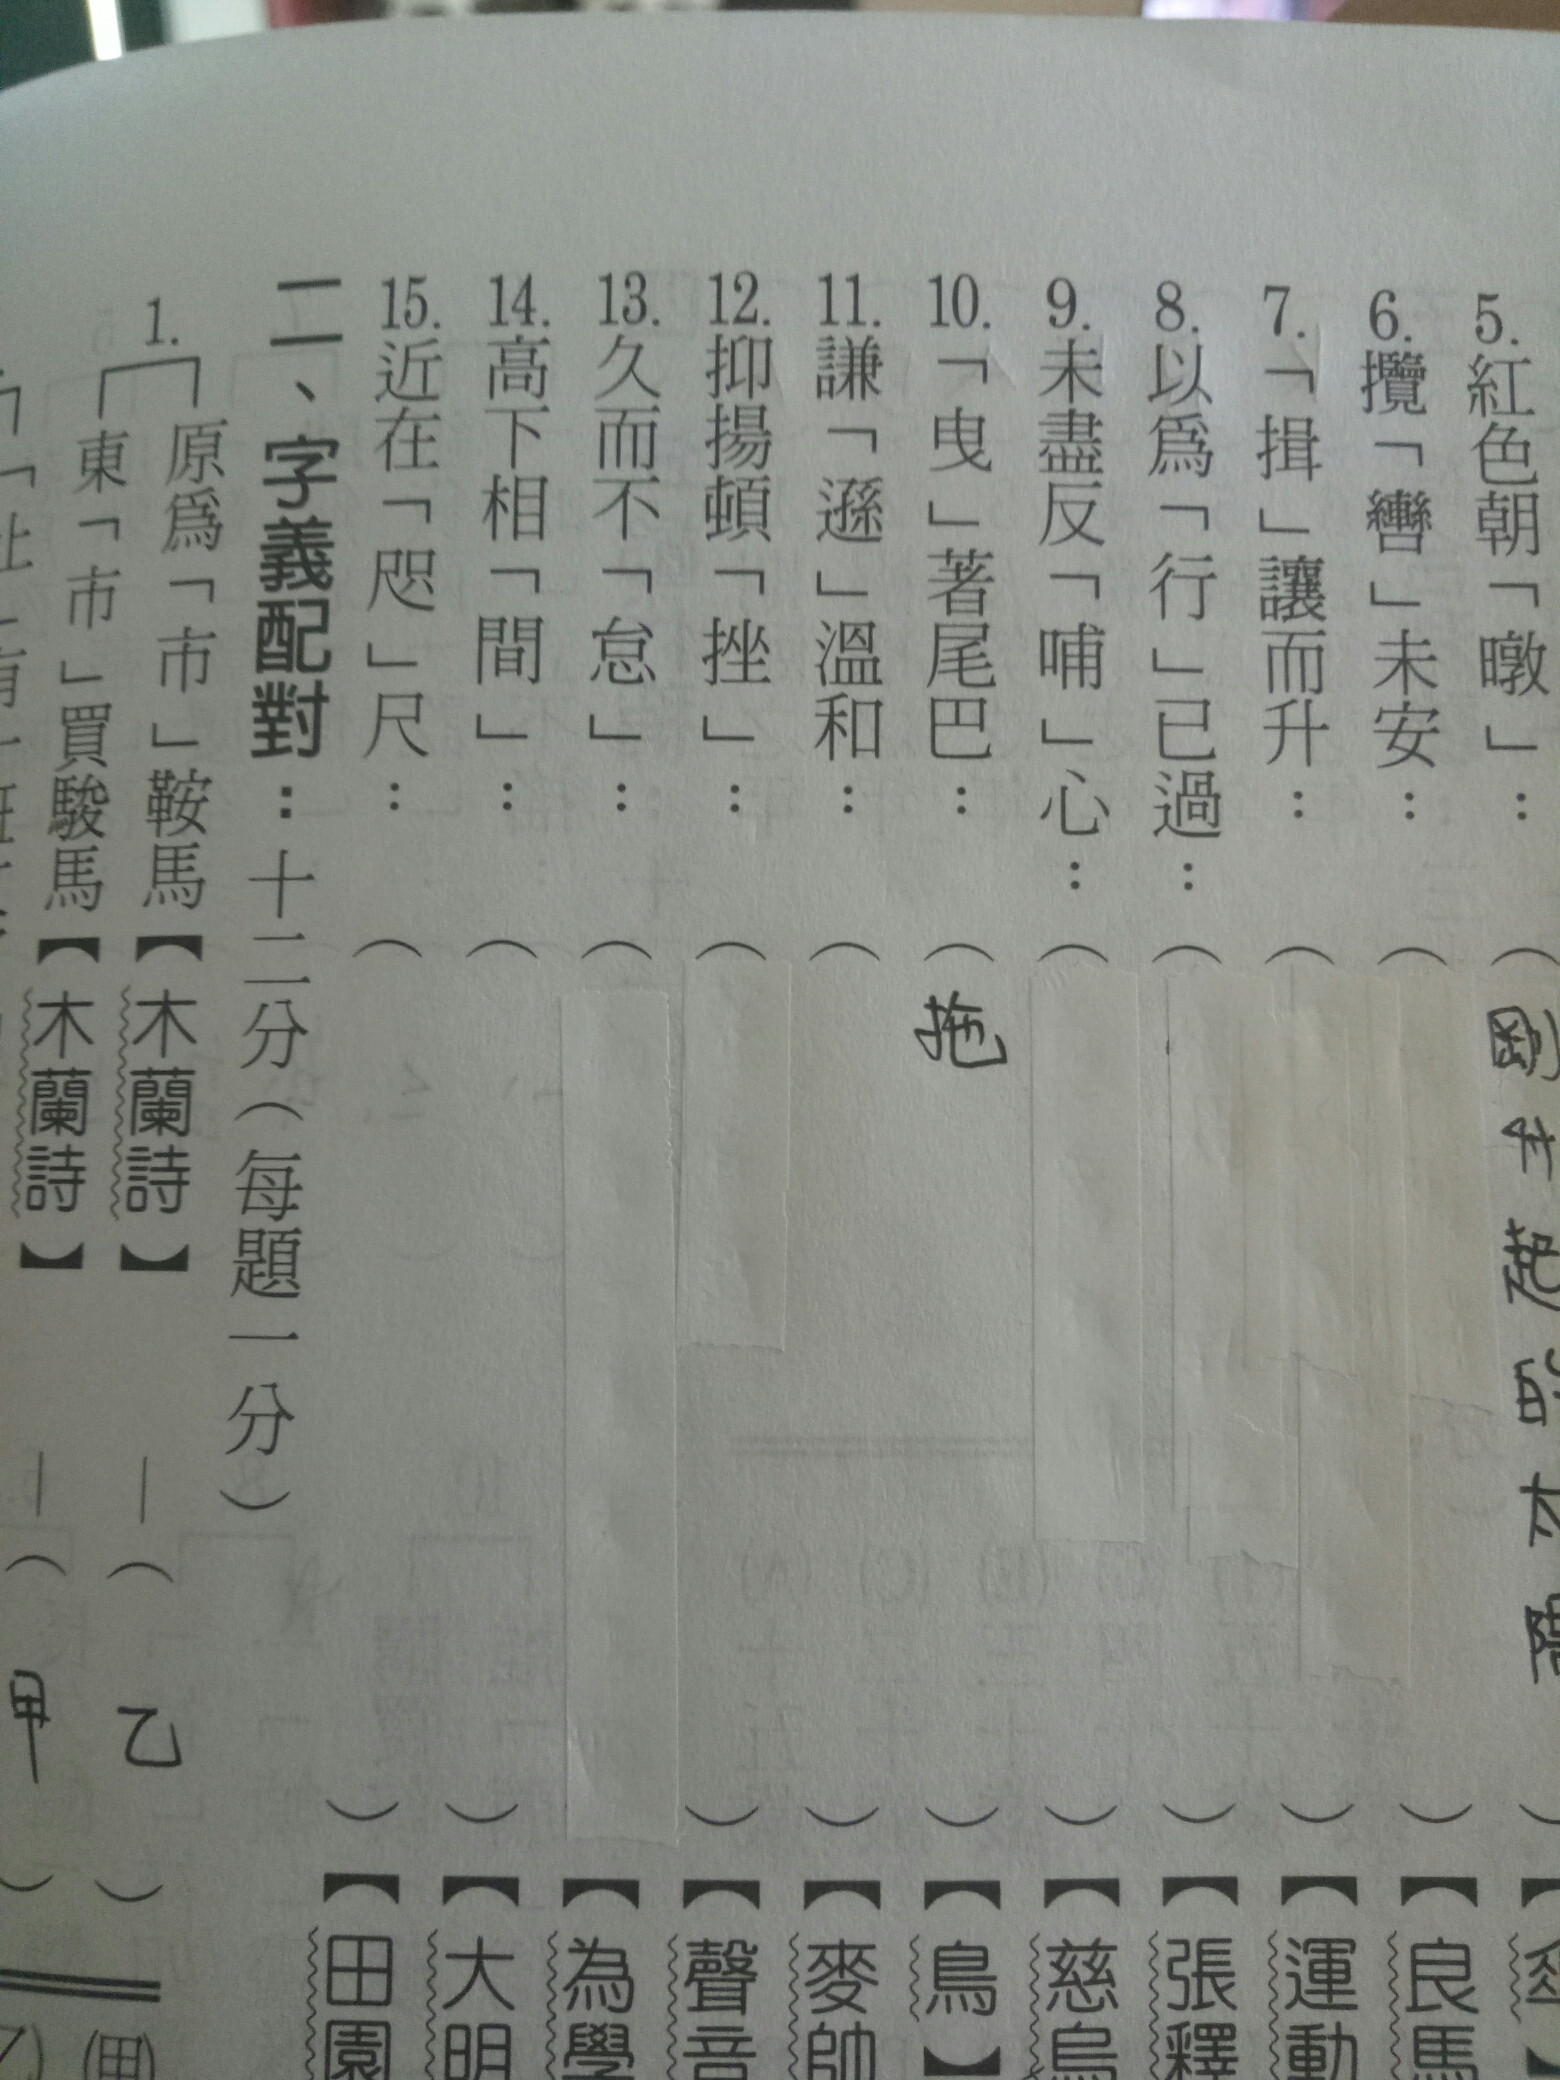 5.紅色朝「暾」：（剛升起的太陽
6.攬「轡」未安：（）【良馬
7.「揖」讓而升：（）【運動
8.以為「行」已過：（）【張釋
9.未盡反「哺」心：（）【慈烏
10.「曳」著尾巴：（拖）【鳥】
11.謙「遜」溫和：（）【麥帥
12.抑揚頓「挫」：（）【聲音
13.久而不「怠」：（【為學
14.高下相「間」：（）【大明
15.近在「咫」尺：（）【田園
二、字義配對：十二分（每題一分）
1.原為「市」鞍馬【木蘭詩】—（乙）
東「市」買駿馬【木蘭詩】—（甲）
(甲)